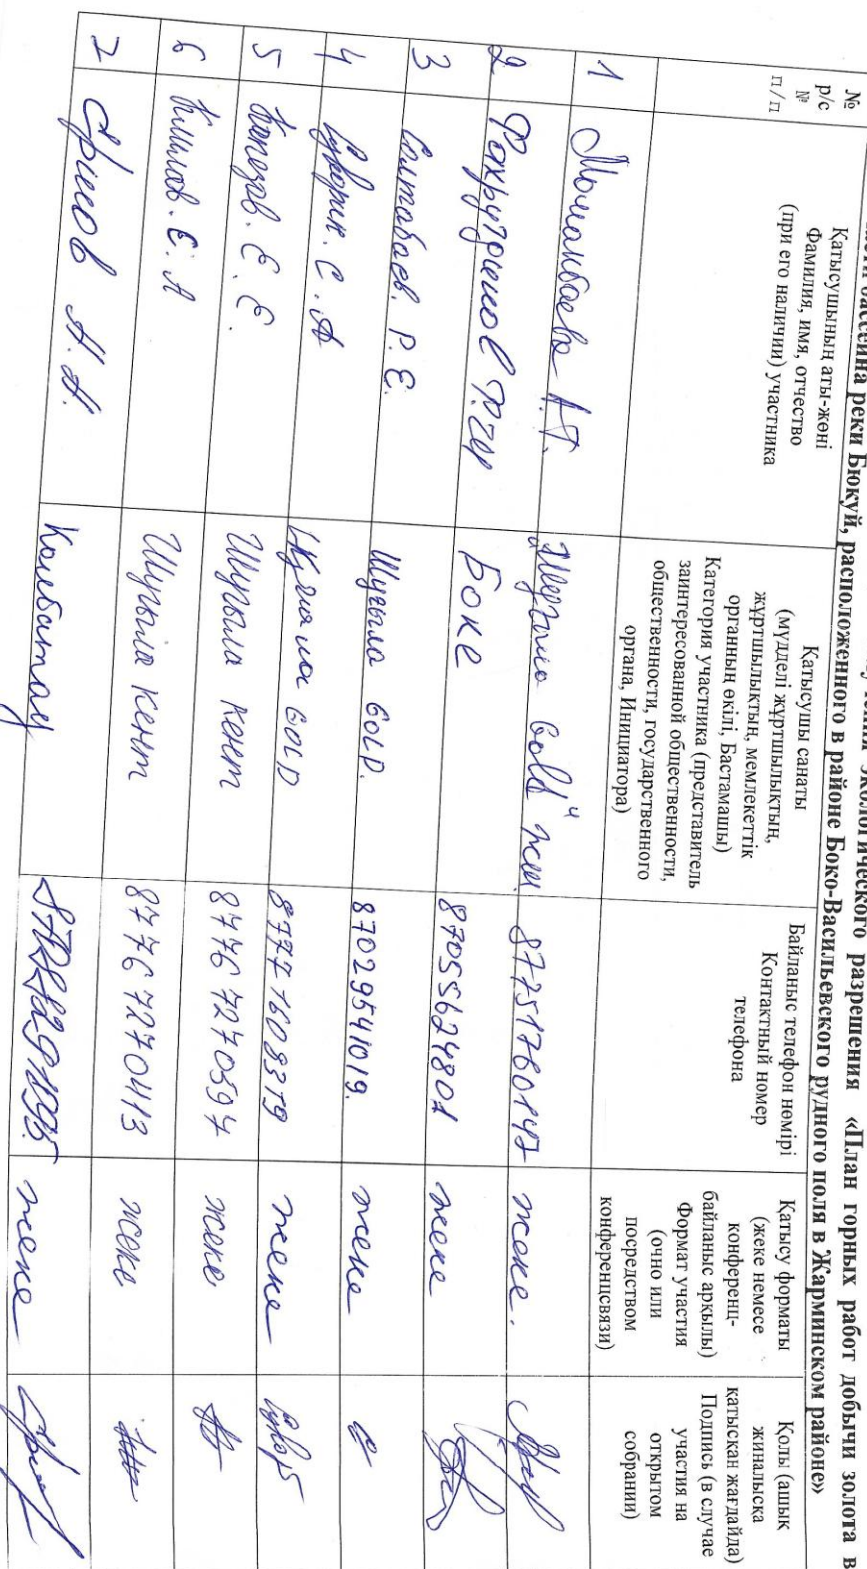 экологического разрешения «План горных работ добычи золота в
бассейна реки Бюкуй, расположенного в районе Боко-Васильевского рудного поля в Жарминском районе»
№
р/с
№
п/п
Қатысушының аты-жөні
Фамилия, имя, отчество
(при его наличии) участника
Қатысушы санаты
(мүдделі жұртшылықтың,
жұртшылықтың, мемлекеттік
органның өкілі, Бастамашы)
Категория участника (представитель
заинтересованной общественности,
общественности, государственного
органа, Инициатора)
Байланыс телефон нөмірі
Контактный номер
телефона
Қатысу форматы
(жеке немесе
конференц-
байланыс арқылы)
Формат участия
(очно или
посредством
конференцсвязи)
Қолы (ашық
жиналысқа
қатысқан жағдайда)
Подпись (в случае
участия на
открытом
собрании)
1 Gold" 87751760147 жеке.
2 Боке 87055624801 жеке
3 Солтабаев. Р.Е. Шуғыла GOLD. 87029541019. жеке
4 Суворин. С.А Шуғыла GOLD 87771608379 жеке
5 Е.Е. Шуғыла Кент 87767270597 жеке
6 Е.А Шуғыла Кент 87767270413 жеке
7 Калбатау жеке